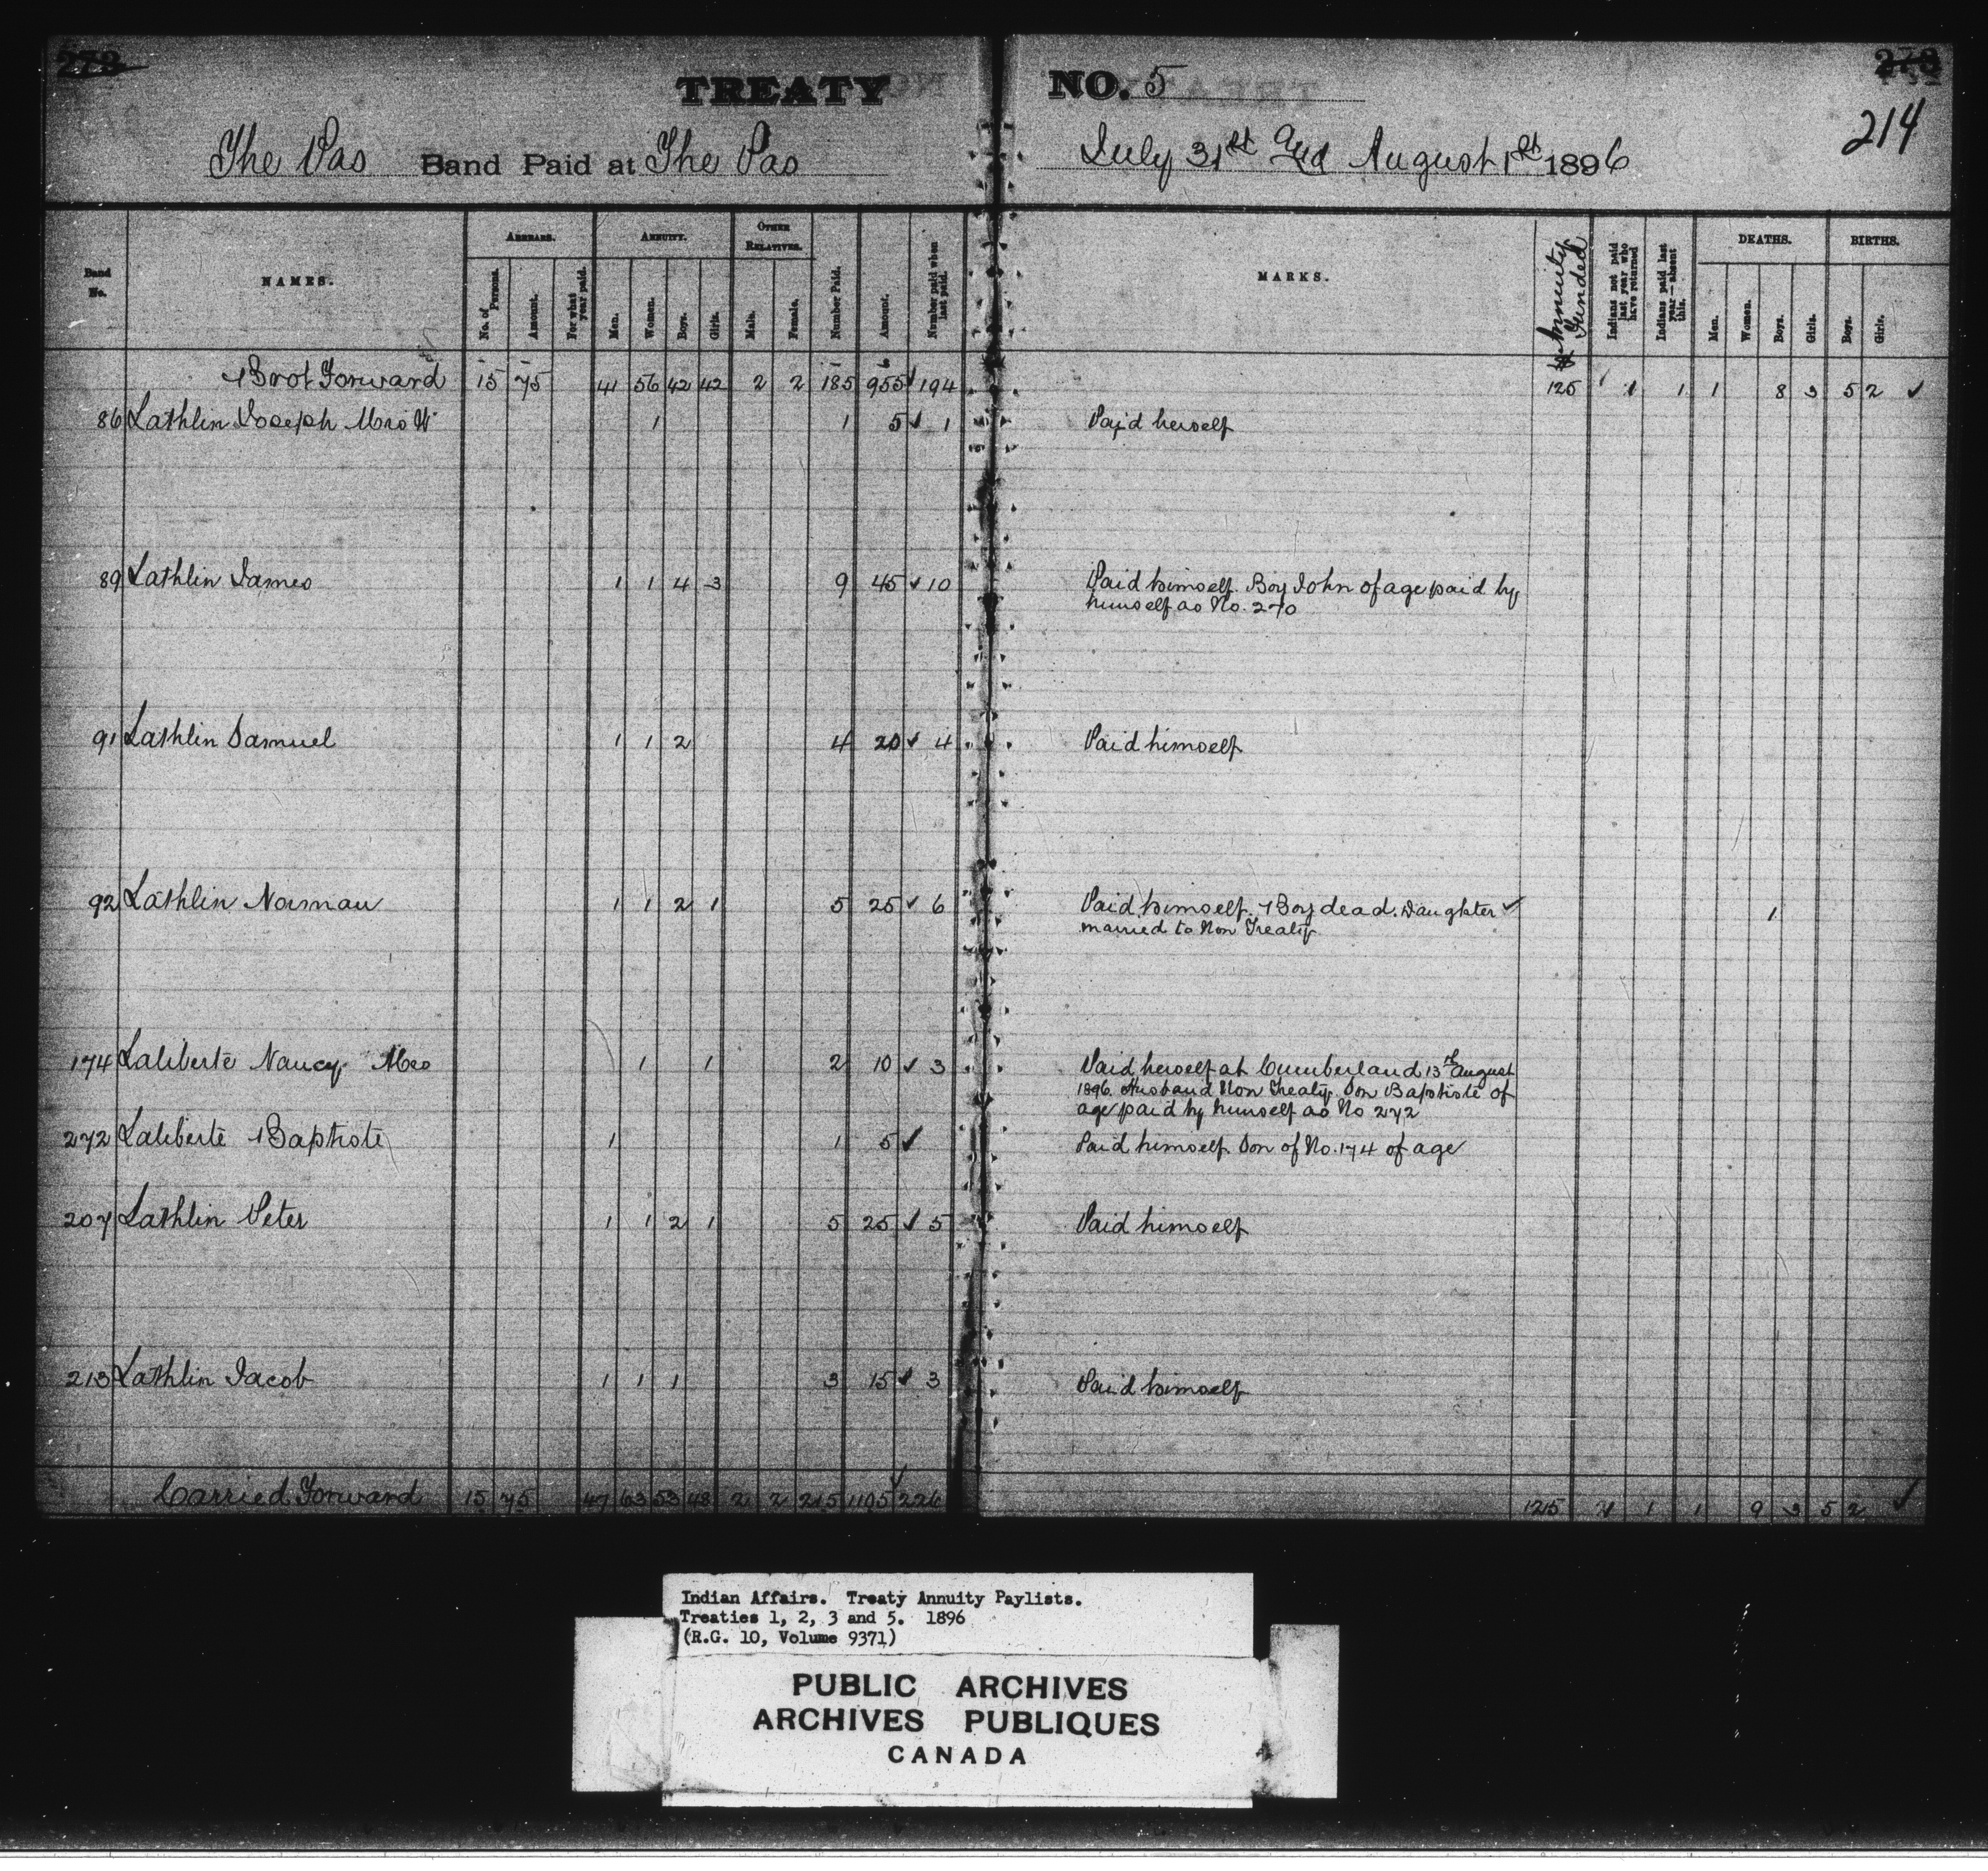 273
TREATY NO. 5
278
214
The Pas Band Paid at The Pas July 31st and August 1st 1896
Band No.
NAMES.
ARREARS.
No. of Persons.
Amount.
For what year paid.
ANNUITY.
Men.
Women.
Boys.
Girls.
OTHER RELATIVES.
Male.
Female.
Number Paid.
Amount.
Number paid when last paid.
MARKS.
Annuity Funded
Indians not paid last year who have returned
Indians paid last year—absent this.
DEATHS.
Men.
Women.
Boys.
Girls.
BIRTHS.
Boys.
Girls.
Brot Forward 15 75 41 56 42 42 2 2 185 955 ✓ 194 125 1 1 1 8 3 5 2 ✓
86 Lathlin Joseph Mrs W 1 1 5 ✓ 1 Paid herself
89 Lathlin James 1 1 4 3 9 45 ✓ 10 Paid himself. Boy John of age paid by
himself as No. 270
91 Lathlin Samuel 1 1 2 4 20 ✓ 4 Paid himself
92 Lathlin Norman 1 1 2 1 5 25 ✓ 6 Paid himself. 1 Boy dead. Daughter ✓ 1
married to Non Treaty
174 Laliberte Nancy Mrs 1 1 2 10 ✓ 3 Paid herself at Cumberland 13th August
1896. Husband Non Treaty. Son Baptiste of
age paid by himself as No 272
272 Laliberte Baptiste 1 1 5 ✓ Paid himself. Son of No. 174 of age
207 Lathlin Peter 1 1 2 1 5 25 ✓ 5 Paid himself
213 Lathlin Jacob 1 1 1 3 15 ✓ 3 Paid himself
Carried Forward 15 75 47 63 53 48 2 2 215 1105 226 125 1 1 1 9 3 5 2 ✓
Indian Affairs. Treaty Annuity Paylists.
Treaties 1, 2, 3 and 5. 1896
(R.G. 10, Volume 9371)
PUBLIC ARCHIVES
ARCHIVES PUBLIQUES
CANADA